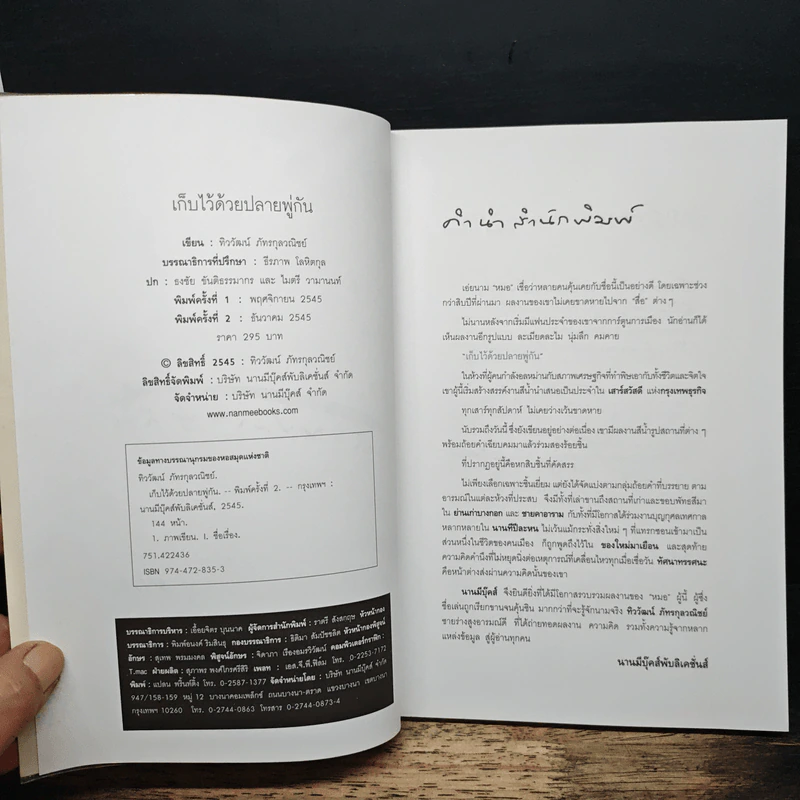 เก็บไว้ด้วยปลายพู่กัน
เขียน : ทิววัฒน์ ภัทรกุลวณิชย์
บรรณาธิการที่ปรึกษา : ธีรภาพ โลหิตกุล
ปก : ธงชัย ขันติธรรมากร และ ไมตรี วามานนท์
พิมพ์ครั้งที่ 1 : พฤศจิกายน 2545
พิมพ์ครั้งที่ 2 : ธันวาคม 2545
ราคา 295 บาท
© ลิขสิทธิ์ 2545 : ทิววัฒน์ ภัทรกุลวณิชย์
ลิขสิทธิ์จัดพิมพ์ : บริษัท นานมีบุ๊คส์พับลิเคชั่นส์ จำกัด
จัดจำหน่าย : บริษัท นานมีบุ๊คส์ จำกัด
www.nanmeebooks.com
ข้อมูลทางบรรณานุกรมของหอสมุดแห่งชาติ
ทิววัฒน์ ภัทรกุลวณิชย์.
เก็บไว้ด้วยปลายพู่กัน. -- พิมพ์ครั้งที่ 2. -- กรุงเทพฯ :
นานมีบุ๊คส์พับลิเคชั่นส์, 2545.
144 หน้า.
1. ภาพเขียน. I. ชื่อเรื่อง.
751.422436
ISBN 974-472-835-3
บรรณาธิการบริหาร : เอื้อยจิตร บุนนาค ผู้จัดการสำนักพิมพ์ : ราตรี สังสกฤษ หัวหน้ากอง
บรรณาธิการ : พิมพ์อนงค์ ริมสินธุ กองบรรณาธิการ : ธิติมา สัมปัชชลิต หัวหน้ากองพิสูจน์
อักษร : สุเทพ พรมมงคล พิสูจน์อักษร : จิดาภา เรืองอมรวิวัฒน์ คอมพิวเตอร์กราฟิก :
T.mac ฝ่ายผลิต : สุภาพร พงศ์ไกรศรีสิริ เพลท : เอส.จี.พี.ฟิล์ม โทร. 0-2253-7172
พิมพ์ : แปลน พริ้นท์ติ้ง โทร. 0-2587-1377 จัดจำหน่ายโดย : บริษัท นานมีบุ๊คส์ จำกัด
947/158-159 หมู่ 12 บางนาคอมเพล็กซ์ ถนนบางนา-ตราด แขวงบางนา เขตบางนา
กรุงเทพฯ 10260 โทร. 0-2744-0863 โทรสาร 0-2744-0873-4
คำนำสำนักพิมพ์
เอ่ยนาม "หมอ" เชื่อว่าหลายคนคุ้นเคยกับชื่อนี้เป็นอย่างดี โดยเฉพาะช่วง
กว่าสิบปีที่ผ่านมา ผลงานของเขาไม่เคยขาดหายไปจาก "สื่อ" ต่าง ๆ
ไม่นานหลังจากเริ่มมีแฟนประจำของเขาจากการ์ตูนการเมือง นักอ่านก็ได้
เห็นผลงานอีกรูปแบบ ละเมียดละไม นุ่มลึก คมคาย
"เก็บไว้ด้วยปลายพู่กัน"
ในห้วงที่ผู้คนกำลังอลหม่านกับสภาพเศรษฐกิจที่ทำพิษเอากับทั้งชีวิตและจิตใจ
เขาผู้นี้เริ่มสร้างสรรค์งานสีน้ำนำเสนอเป็นประจำใน เสาร์สวัสดี แห่งกรุงเทพธุรกิจ
ทุกเสาร์ทุกสัปดาห์ ไม่เคยว่างเว้นขาดหาย
นับรวมถึงวันนี้ ซึ่งยังเขียนอยู่อย่างต่อเนื่อง เขามีผลงานสีน้ำรูปสถานที่ต่าง ๆ
พร้อมถ้อยคำเฉียบคมมาแล้วร่วมสองร้อยชิ้น
ที่ปรากฏอยู่นี้คือหกสิบชิ้นที่คัดสรร
ไม่เพียงเลือกเฉพาะชิ้นเยี่ยม แต่ยังได้จัดแบ่งตามกลุ่มถ้อยคำที่บรรยาย ตาม
อารมณ์ในแต่ละห้วงที่ประสบ จึงมีทั้งที่เล่าขานถึงสถานที่เก่าและขอบพัทธสีมา
ใน ย่านเก่าบางกอก และ ชายคาอาราม กับทั้งที่มีโอกาสได้ร่วมงานบุญกุศลเทศกาล
หลากหลายใน นานทีปีละหน ไม่เว้นแม้กระทั่งสิ่งใหม่ ๆ ที่แทรกซอนเข้ามาเป็น
ส่วนหนึ่งในชีวิตของคนเมือง ก็ถูกพูดถึงไว้ใน ของใหม่มาเยือน และสุดท้าย
ความคิดคำนึงที่ไม่หยุดนิ่งต่อเหตุการณ์ที่เคลื่อนไหวทุกเมื่อเชื่อวัน ทัศนาทรรศนะ
คือหน้าต่างส่งผ่านความคิดนั้นของเขา
นานมีบุ๊คส์ จึงยินดียิ่งที่ได้มีโอกาสรวบรวมผลงานของ "หมอ" ผู้นี้ ผู้ซึ่ง
ชื่อเล่นถูกเรียกขานจนคุ้นชิน มากกว่าที่จะรู้จักนามจริง ทิววัฒน์ ภัทรกุลวณิชย์
ชายร่างสูงอารมณ์ดี ที่ได้ถ่ายทอดผลงาน ความคิด รวมทั้งความรู้จากหลาก
แหล่งข้อมูล สู่ผู้อ่านทุกคน
นานมีบุ๊คส์พับลิเคชั่นส์